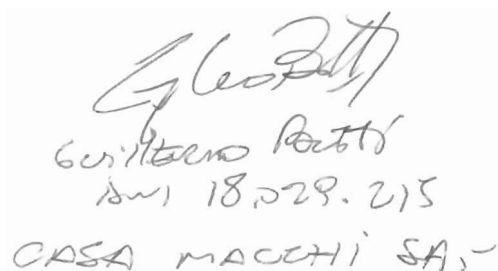 Guillermo
DNI 18.029.215
CASA MACCHI SA.-